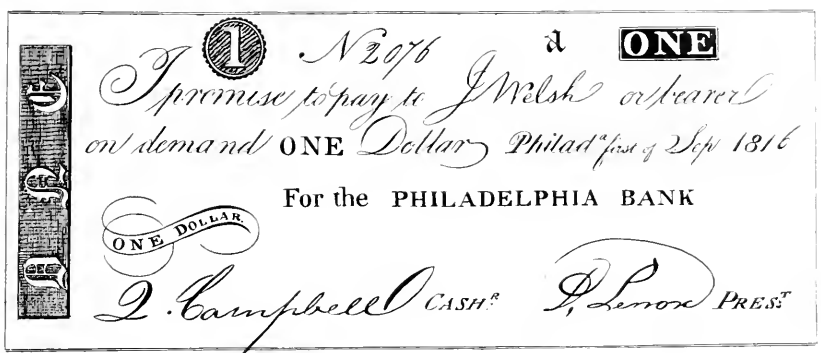 1 N 2076 a ONE
I promise to pay to J Welsh or bearer
on demand ONE Dollar Philadᵃ first of Sep 1816
For the PHILADELPHIA BANK
ONE DOLLAR.
Q. Campbell CASHᴿ. D. Lenox PRESᵀ.
ONE